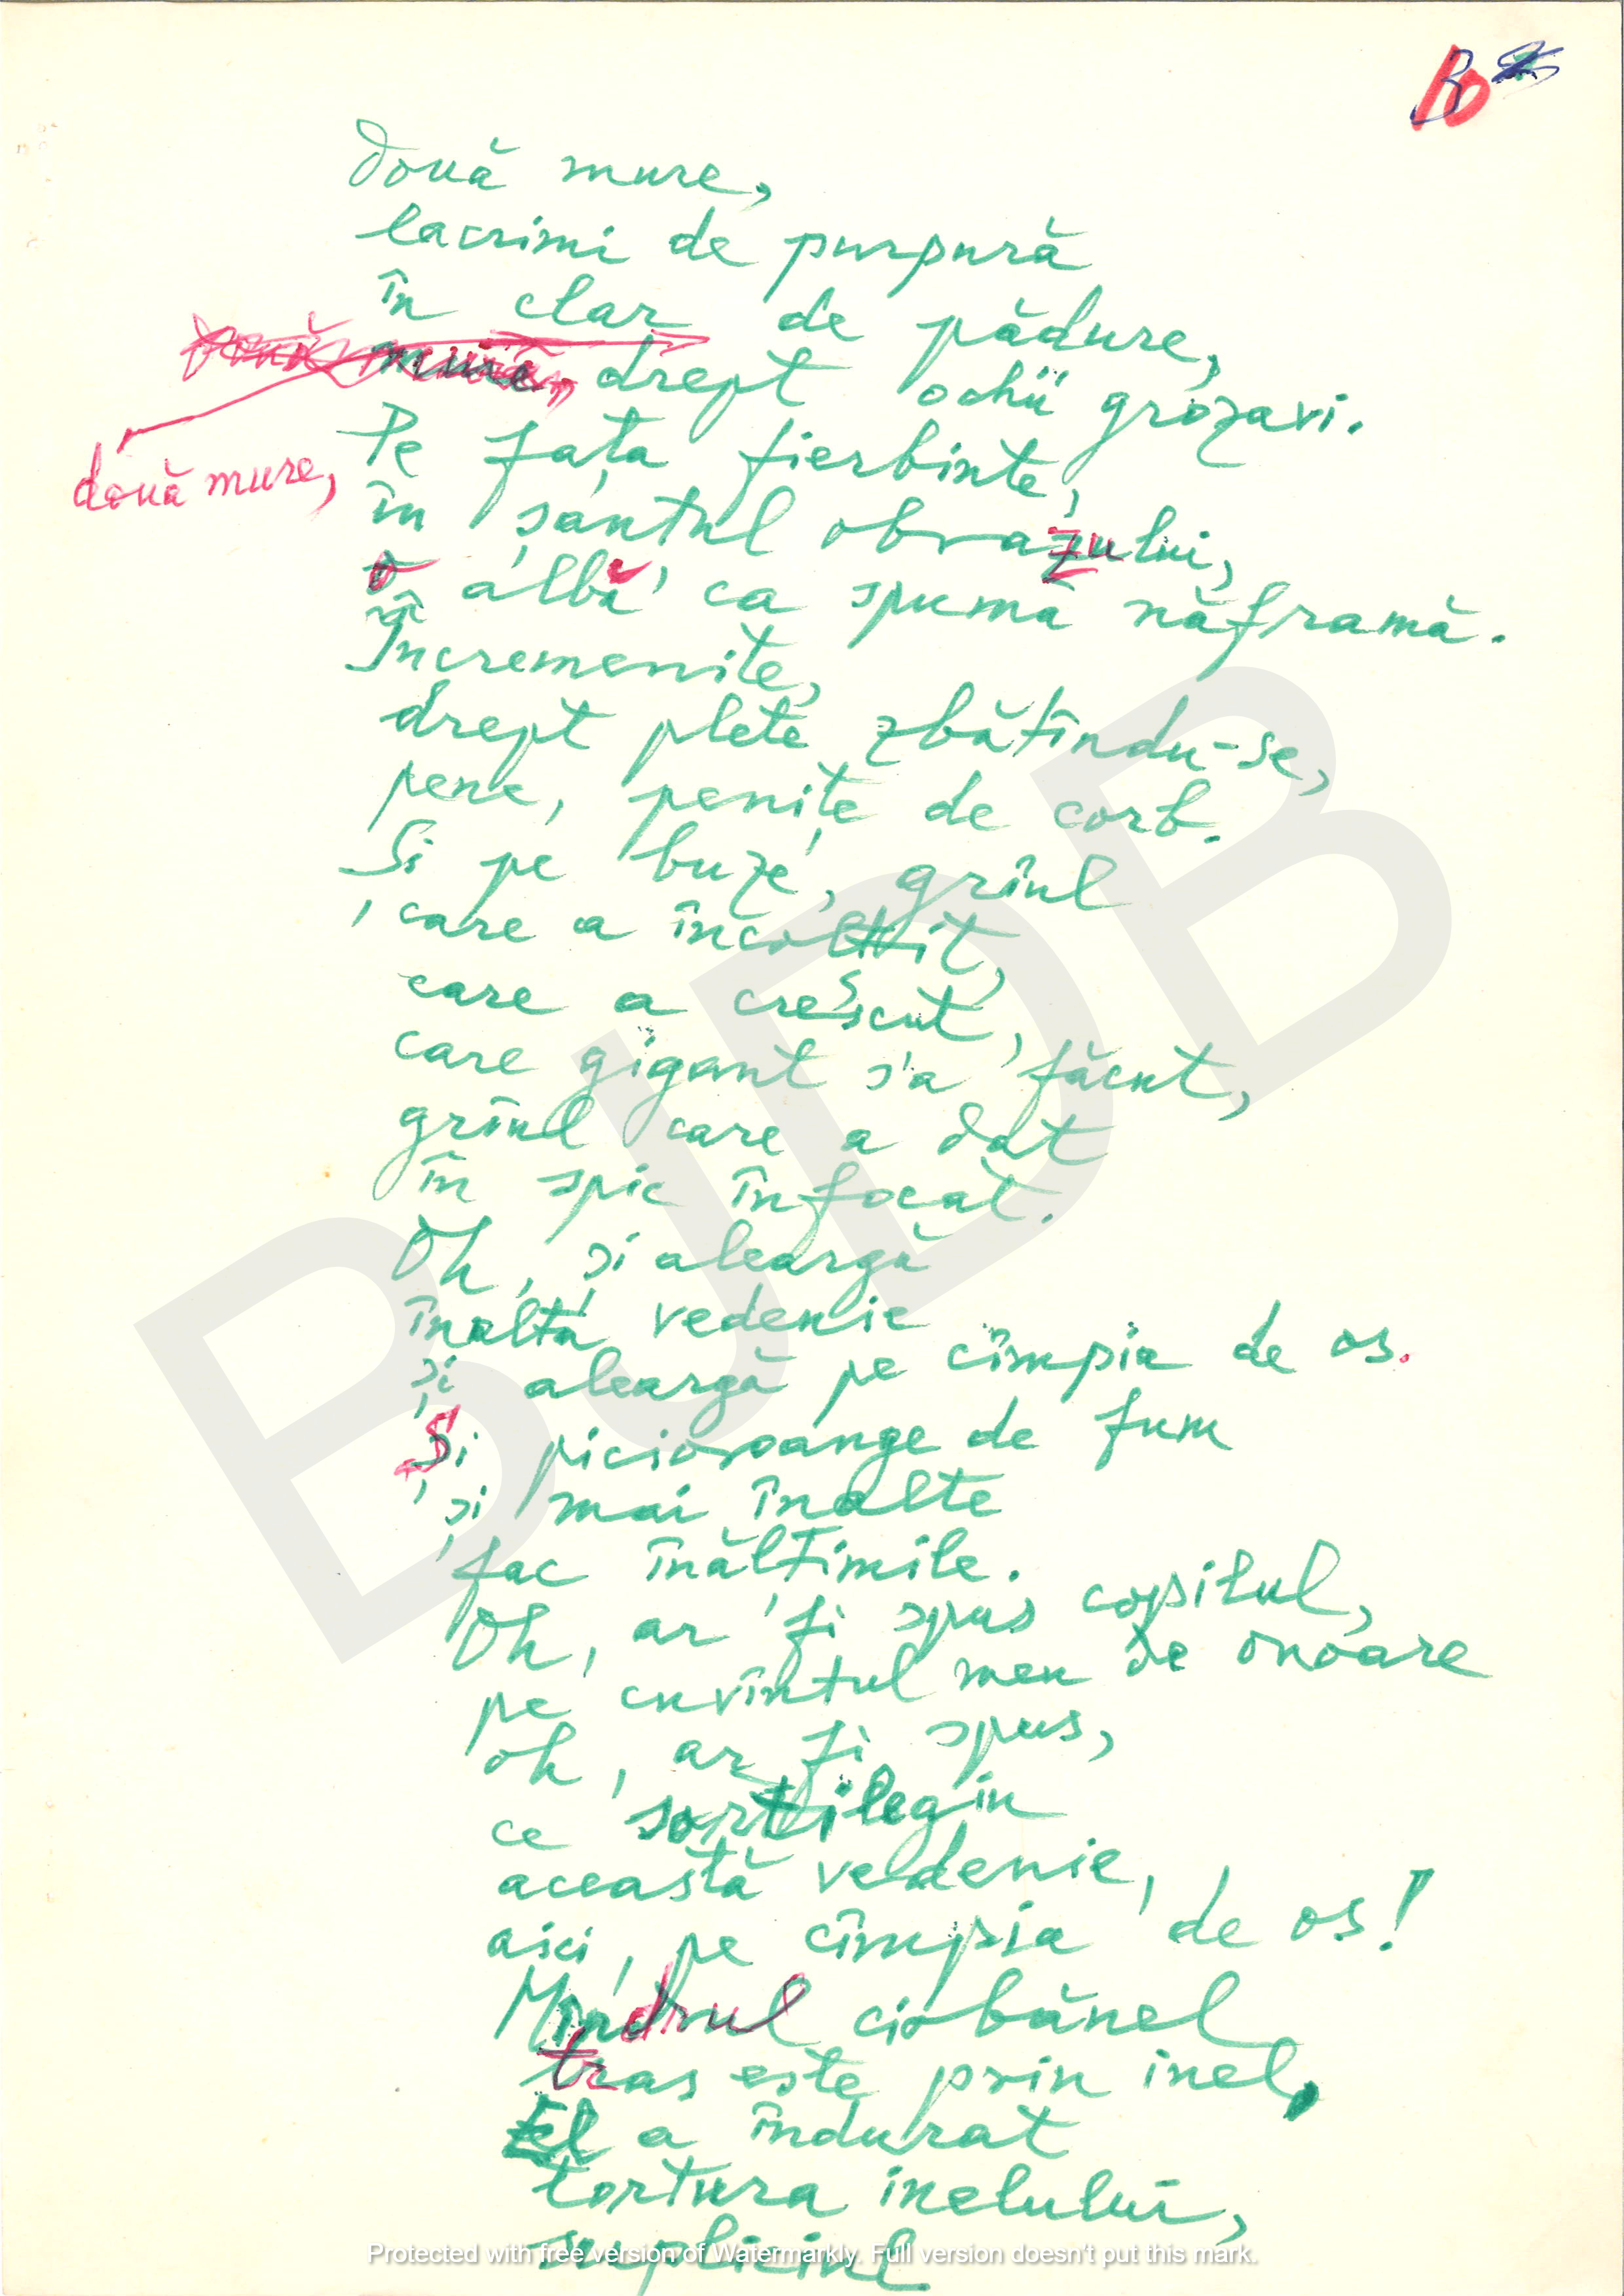 două mure,
lacrimi de purpură
în clar de pădure,
două mure, drept ochii grozavi.
două mure,
Pe fața fierbinte,
în șanțul obrazului,
o albă ca spuma năframă.
Încremenite,
drept plete zbătîndu-se,
pene, penițe de corb.
Și pe buze, grîul
care a încolțit,
care a crescut,
care gigant s'a făcut,
grîul care a dat
în spic înfocat.
Oh, și aleargă
înaltă vedenie
și aleargă pe cîmpia de os.
Și picioroange de fum
și mai înalte
fac înălțimile.
Oh, ar fi spus copilul,
pe cuvîntul meu de onoare
oh, ar fi spus,
ce sortilegiu
această vedenie,
aici, pe cîmpia de os!
Mîndrul ciobănel
tras este prin inel,
El a îndurat
tortura inelului,
supliciul
BJDB
Protected with free version of Watermarkly. Full version doesn't put this mark.